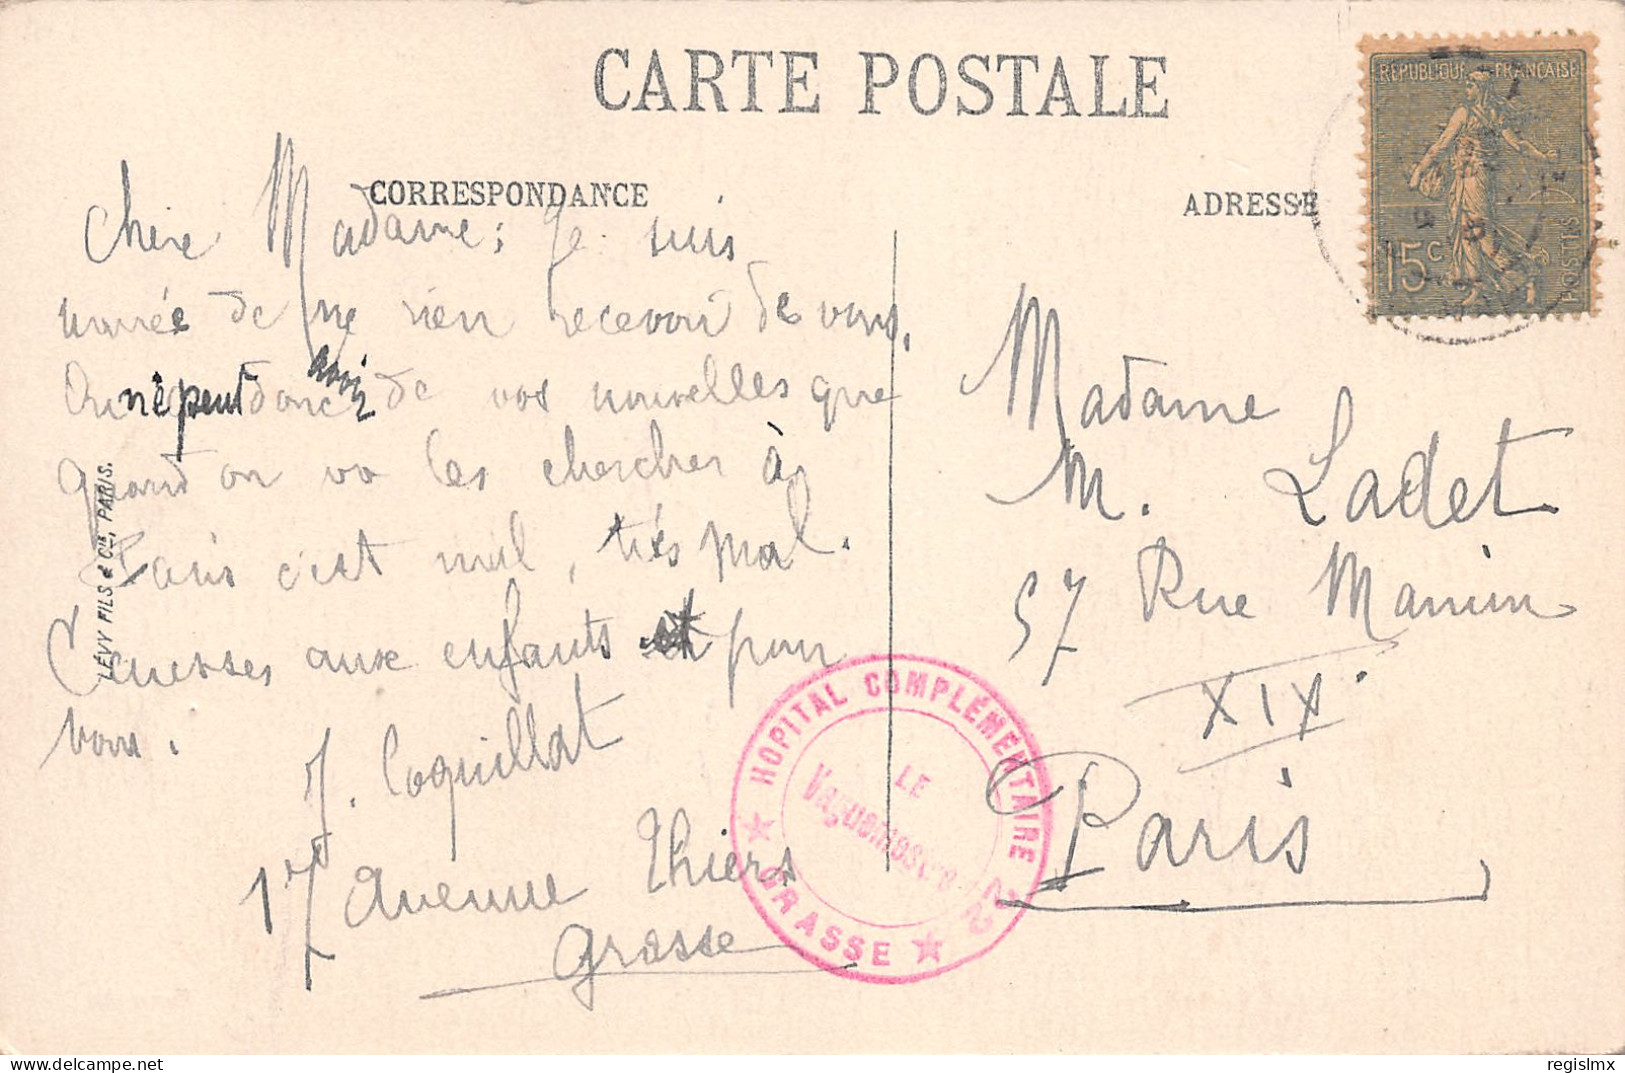 CARTE POSTALE
CORRESPONDANCE
ADRESSE
RÉPUBLIQUE FRANÇAISE
15c
POSTES
Chère Madame; Je suis
navrée de ne rien recevoir de vous.
On ne peut donc avoir de vos nouvelles que
quand on va les chercher à
Paris c'est mal, très mal.
Caresses aux enfants et pour
vous.
J. Coquillat
17 Avenue Thiers
Grasse
LÉVY FILS & Cie, PARIS.
Madame
M. Ladet
57 Rue Manin
XIX.
Paris
HOPITAL COMPLÉMENTAIRE 22
GRASSE
LE
Vaguemestre
delcampe.net
regislmx